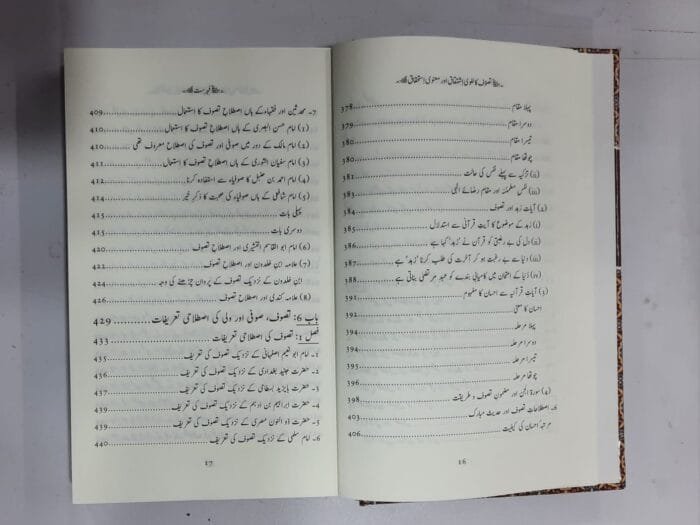 تصوف کا لغوی اشتقاق اور معنوی استحقاق
پہلا مقام 378
دوسرا مقام 379
تیسرا مقام 380
چوتھا مقام 380
(ii) تزکیہ سے پہلے نفس کی حالت 381
(iii) نفس مطمئنہ اور مقام رضائے الٰہی 383
(2) آیات زہد اور تصوف 384
(i) زہد کے موضوع کا آیتِ قرآنی سے استدلال 385
(ii) دل کی بے رغبتی کو قرآن نے 'زہد' کہا ہے 386
(iii) دنیا سے بے رغبت ہو کر آخرت کی طلب کرنا 'زہد' ہے 387
(iv) دنیا کے امتحان میں کامیابی بندے کو عبدِ مرتضٰی بناتی ہے 388
(3) آیات قرآنیہ سے احسان کا مفہوم 391
احسان کا معنی 392
پہلا مرحلہ 394
دوسرا مرحلہ 394
تیسرا مرحلہ 396
چوتھا مرحلہ 396
(4) سورۃ الجن اور مضمون تصوف و طریقت 398
6۔ اصطلاحاتِ تصوف اور حدیث مبارک 403
مرتبۂ احسان کی کیفیت 406
16
فہرست
7۔ محدثین اور فقہاء کے ہاں اصطلاحِ تصوف کا استعمال 409
(1) امام حسن البصری کے ہاں اصطلاح تصوف کا استعمال 410
(2) امام مالک کے دور میں صوفی اور تصوف کی اصطلاح معروف تھی 410
(3) امام سفیان الثوری کے ہاں اصطلاح تصوف کا استعمال 411
(4) امام احمد بن حنبل کا صوفیاء سے استفادہ کرنا 412
(5) امام شافعی کے ہاں صوفیاء کی صحبت کا ذکرِ خیر 414
پہلی بات 415
دوسری بات 415
(6) امام ابو القاسم القشیری اور اصطلاح تصوف 420
(7) علامہ ابن خلدون اور تصوف 422
ابن خلدون کے نزدیک تصوف کے پروان چڑھنے کی وجہ 424
(8) علامہ کندی اور اصطلاح تصوف 426
باب 6: تصوف، صوفی اور ولی کی اصطلاحی تعریفات 429
فصل 1: تصوف کی اصطلاحی تعریفات 433
1۔ امام ابو نعیم اصفہانی کے نزدیک تصوف کی تعریف 435
2۔ حضرت جنید بغدادی کے نزدیک تصوف کی تعریف 436
3۔ حضرت بایزید بسطامی کے نزدیک تصوف کی تعریف 437
4۔ حضرت ابراہیم بن ادہم کے نزدیک تصوف کی تعریف 439
5۔ حضرت ذو النون مصری کے نزدیک تصوف کی تعریف 439
6۔ امام سلمی کے نزدیک تصوف کی تعریف 440
17